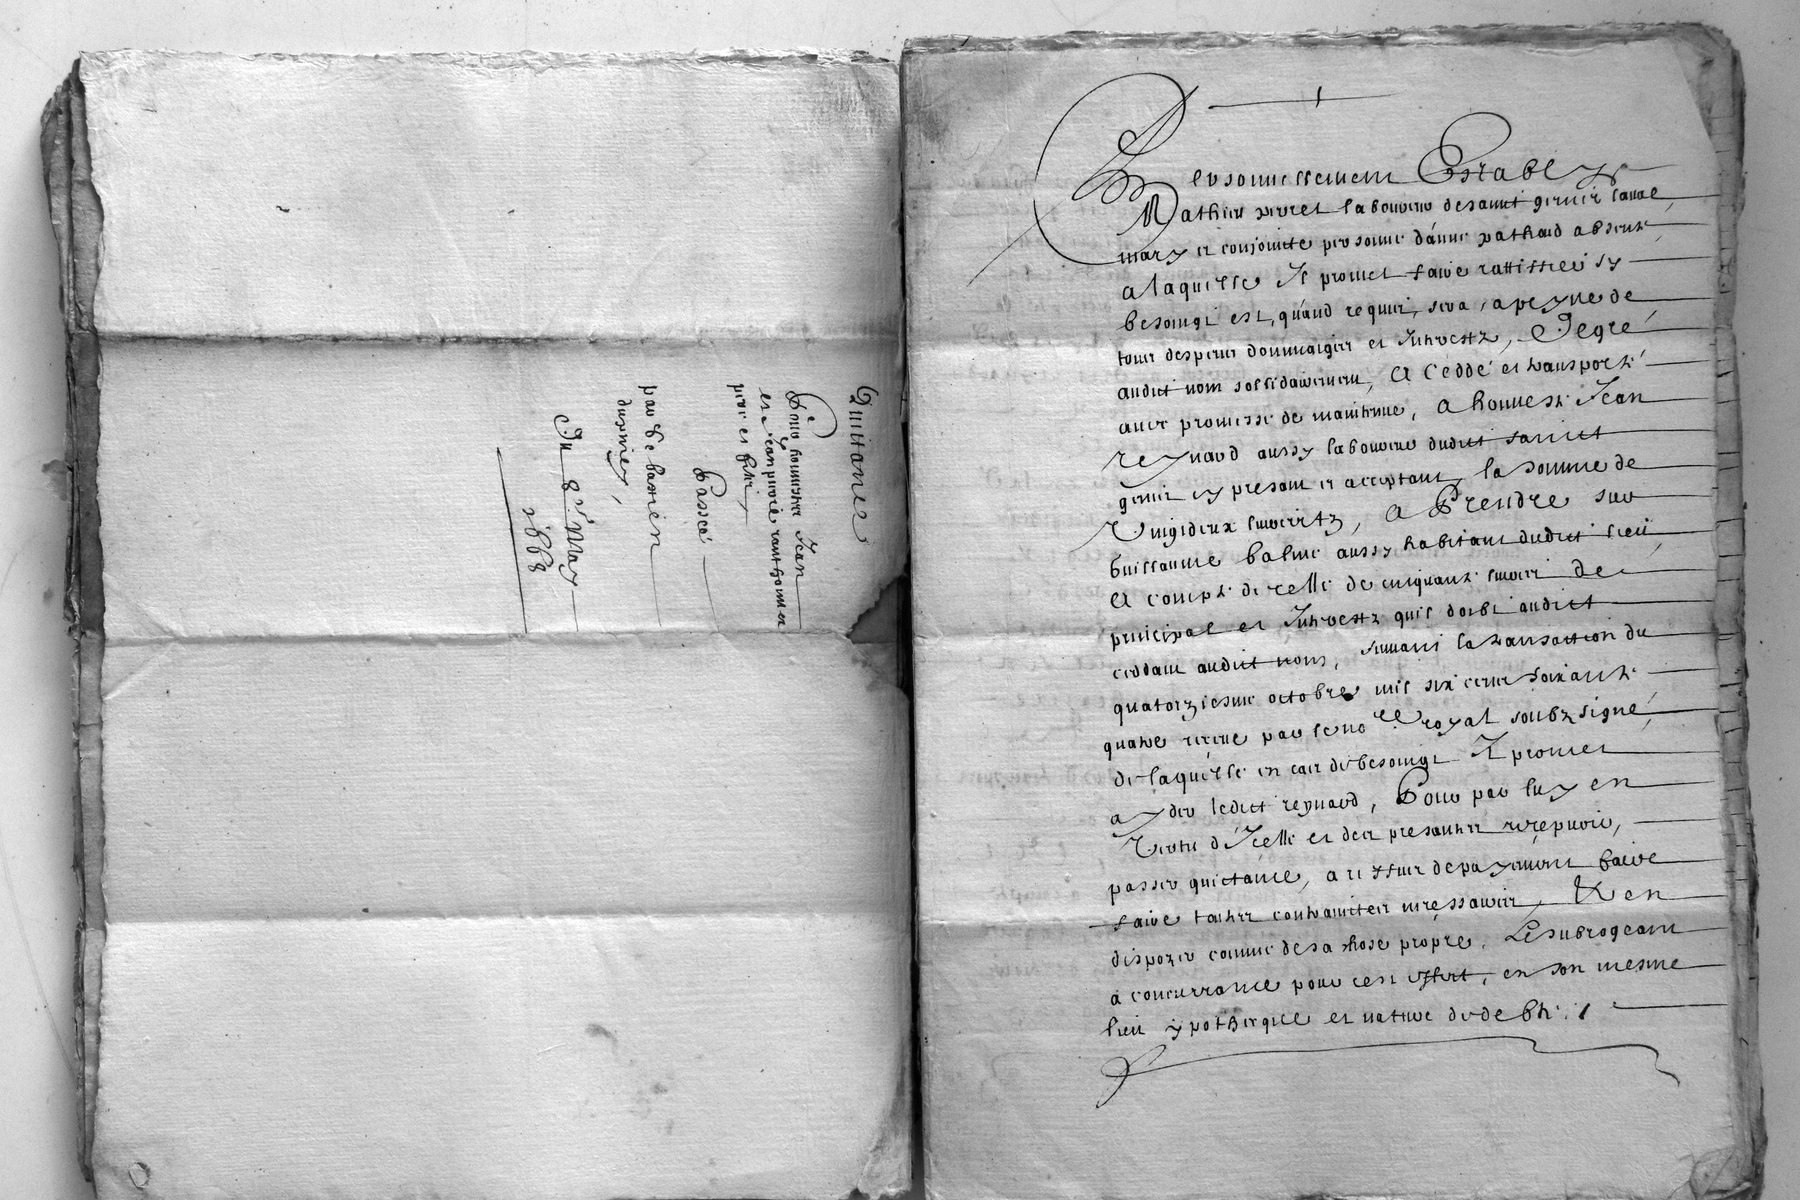 Quittance
Pour honnestes Jean
et Jean pierre ranthonnet
pere et filz
Passée
par Sebastien
dupuiey
Du 8e May
1668
Personnellement Estably
Mathieu peyret laboureur de sainct genier lavae
mary et conjoincte personne d'anne pathaud absente
a laquelle Il promet faire rattiffier sy
besoingt est, quand requis sera, a peyne de
tous despens dommaiges et Intherestz, De gré
audict nom sollidairement, A céddé et transporté
avec promesse de maintenue, A honneste Jean
reynaud aussy laboureur dudict sainct
genier cy presant et acceptant, la somme de
Vingtdeux livres tz, A Prendre sur
Guillaume balme aussy habitant dudict lieu
A compte de celle de cinquante livres de
principal et Intherestz qu'il doibt audict
ceddant audict nom, suivant la transaction du
quatorziesme octobre mil six cens soixante
quatre receue par le no.re royal soubzsigné,
de laquelle en cas de besoingt Il promet
ayder ledict reynaud, Pour par luy en
Vertu d'Icelle et des presantes recepvoir,
passer quictance, a reffuz de payement faire
faire toutes contrainctes necessaires, Et en
dispozer comme de sa chose propre, Le subrogeant
a concurrance pour cest effect, en son mesme
lieu ypothecque et nature de debte. /